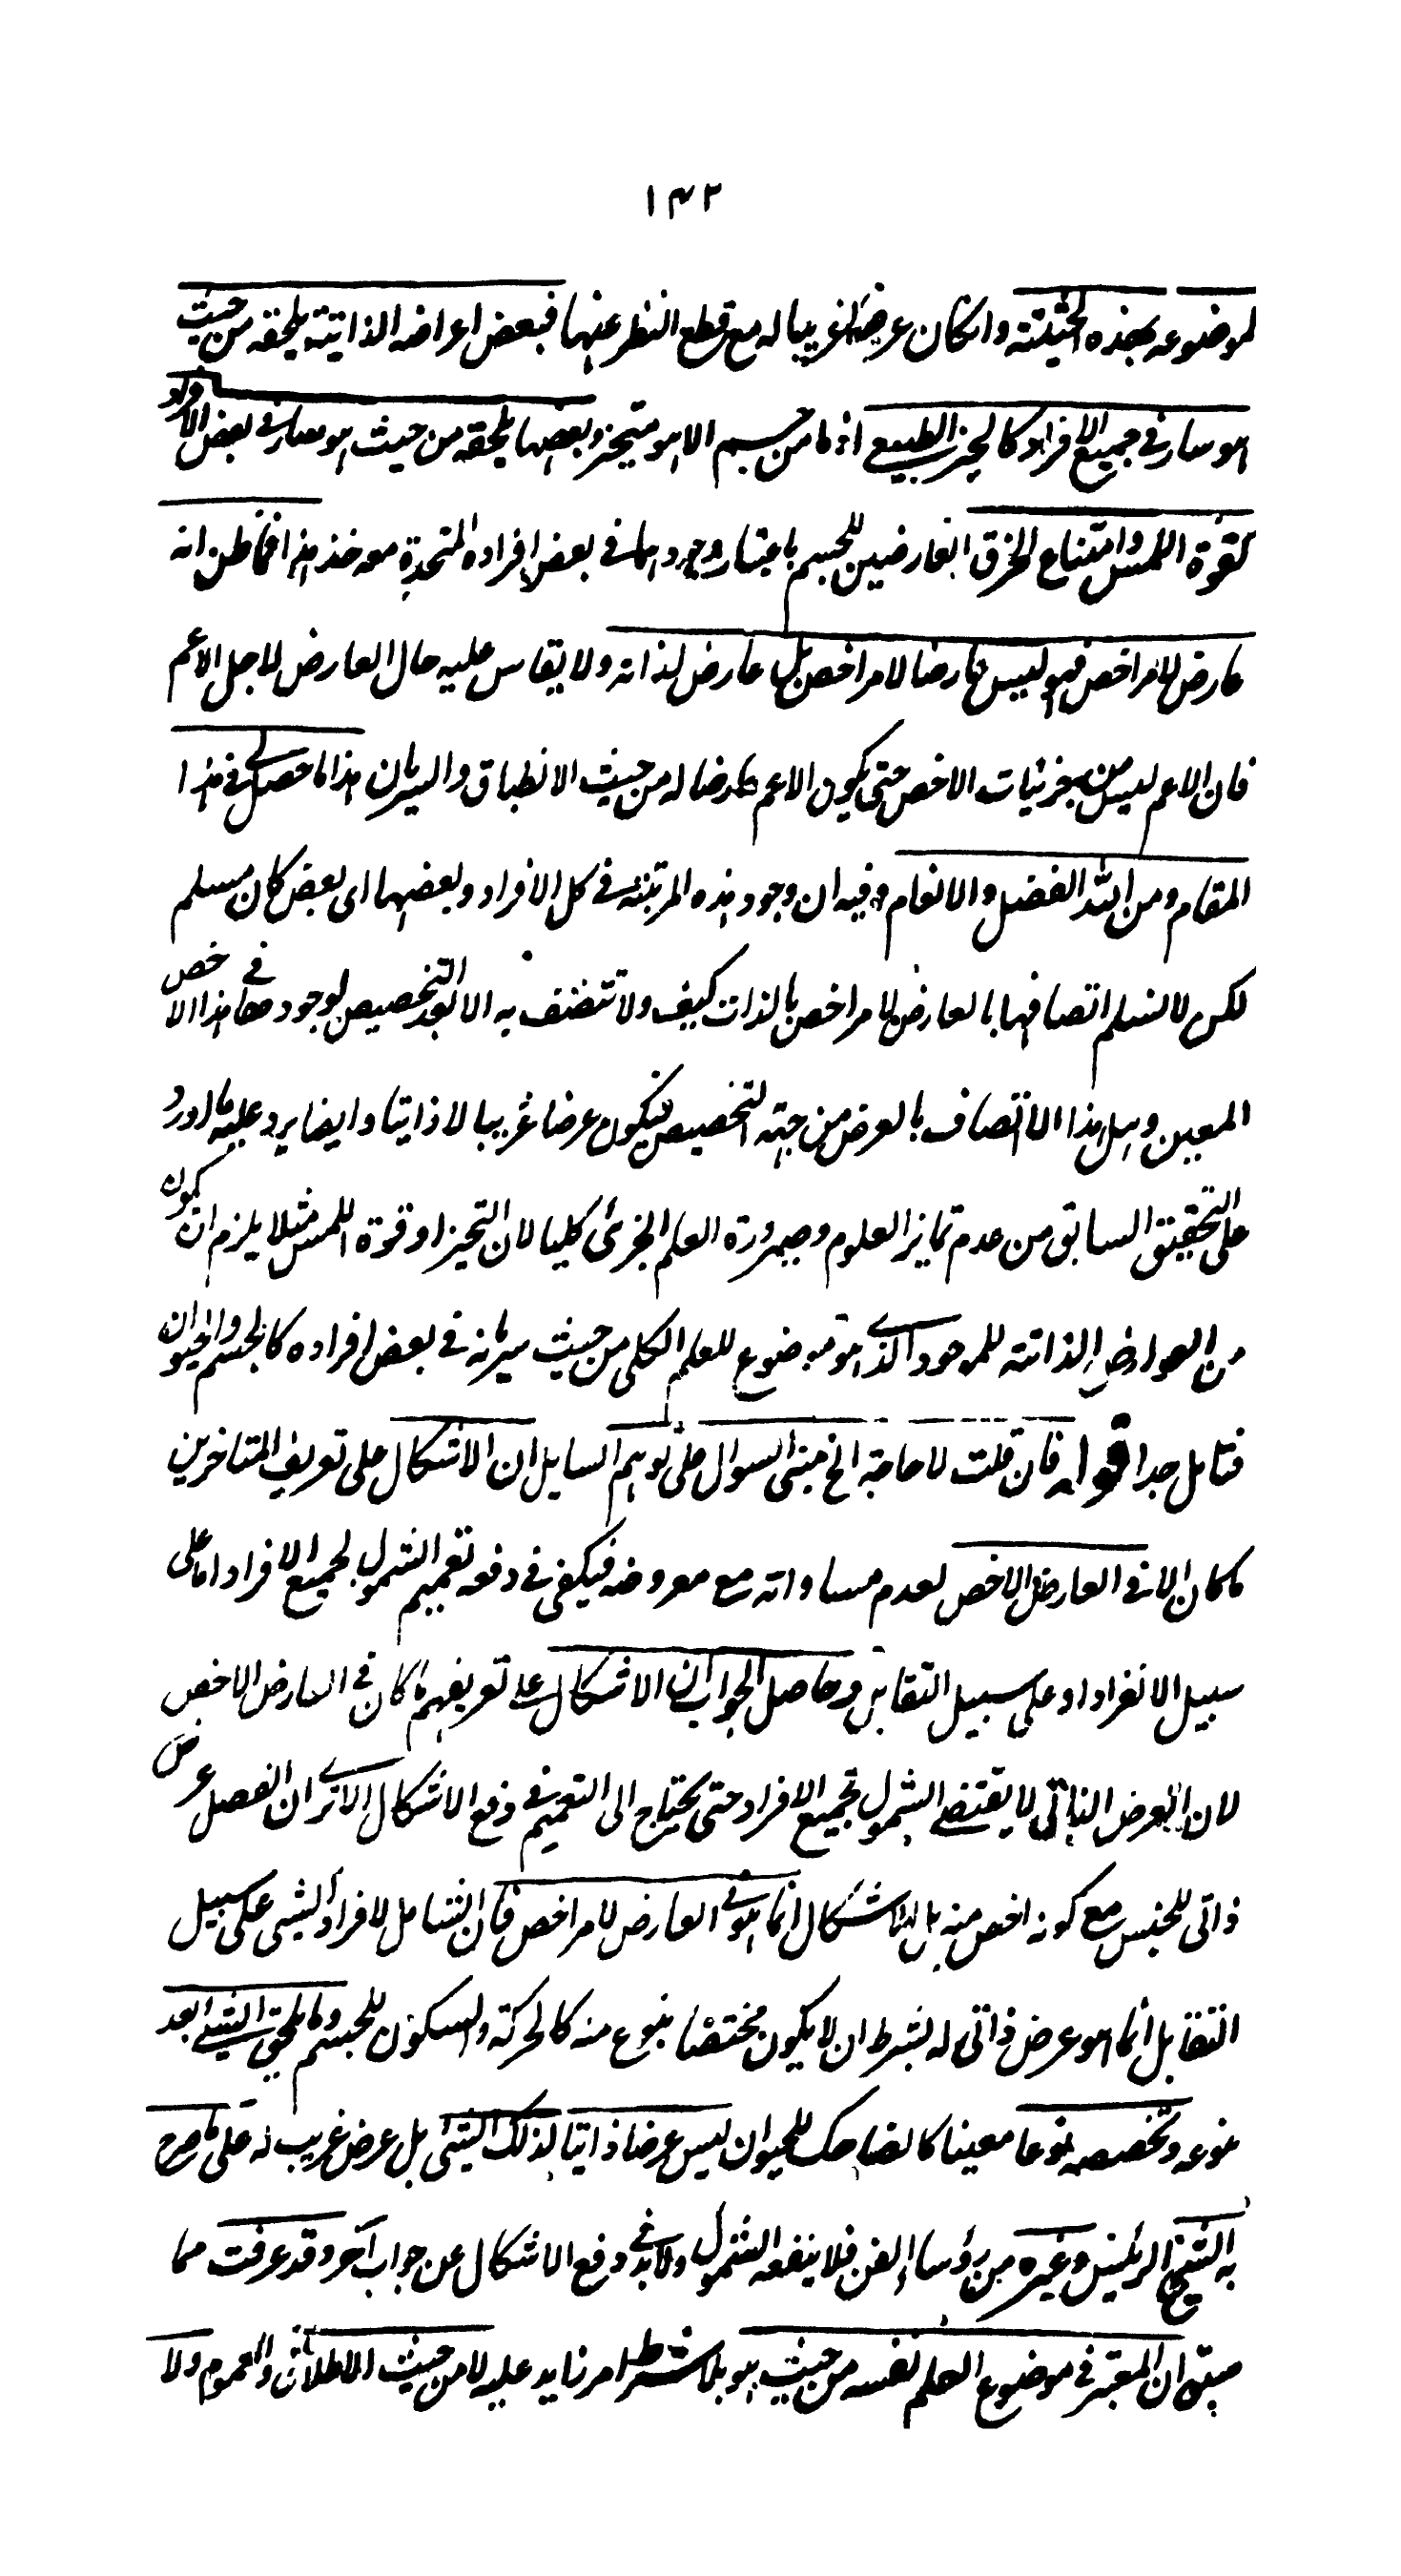 ١٤٢
لموضوعه بهذه الحيثية وان كان عرضا غريبا له مع قطع النظر عنها فبعض اعراضه الذاتية يلحقه من حيث
هو سار في جميع الافراد كالحيز الطبيعي اذ ما من جسم الا هو متحيز وبعضها يلحقه من حيث هو سار في بعض الافراد
كقوة اللمس وامتناع الخرق العارضين للجسم باعتبار وجودهما في بعض افراده المتحدة معه خذ هذا فما ظن انه
عارض لامر اخص فهو ليس عارضا لامر اخص بل عارض لذاته ولا يقاس عليه حال العارض لاجل الاعم
فان الاعم ليس من جزئيات الاخص حتى يكون الاعم عارضا له من حيث الانطباق والسريان هذا ما حصل لي في هذا
المقام ومن الله الفضل والانعام وفيه ان وجود هذه المرتبة في كل الافراد وبعضها اى بعض كان مسلم
لكن لا نسلم اتصافها بالعارض لامر اخص بالذات كيف ولا تتصف به الا بعد التخصيص لوجودها في هذا الاخص
المعين وهل هذا الا اتصاف بالعرض من جهة التخصيص فيكون عرضا غريبا لا ذاتيا وايضا يرد عليه ما اورد
على التحقيق السابق من عدم تمايز العلوم وصيرورة العلم الجزئ كليا لان التحيز او قوة اللمس مثلا يلزم ان يكون
من العوارض الذاتية للموجود الذى هو موضوع للعلم الكلى من حيث سريانه في بعض افراده كالجسم والحيوان
فتامل جدا قوله فان قلت لا حاجة الخ مبنى السوال على توهم السايل ان الاشكال على تعريف المتاخرين
ما كان الا في العارض الاخص لعدم مساواته مع معروضه فيكفى في دفعه تعميم الشمول لجميع الافراد اما على
سبيل الانفراد او على سبيل التقابل وحاصل الجواب ان الاشكال على تعريفهم ما كان في العارض الاخص
لان العرض الذاتى لا يقتضى الشمول لجميع الافراد حتى يحتاج الى التعميم في دفع الاشكال الا ترى ان الفصل عرض
ذاتى للجنس مع كونه اخص منه بل الاشكال انما هو في العارض لامر اخص فان الشامل لافراد الشيى على سبيل
التقابل انما هو عرض ذاتى له بشرط ان لا يكون مختصا بنوع منه كالحركة والسكون للجسم وما يلحق الشيى بعد
نوعه وتخصصه نوعا معينا كالضاحك للحيوان ليس عرضا ذاتيا لذلك الشئ بل عرض غريب له على ما صرح
به الشيخ الرئيس وغيره من رؤساء الفن فلا ينفعه الشمول ولابد في دفع الاشكال عن جواب آخر وقد عرفت مما
سبق ان المعتبر في موضوع العلم نفسه من حيث هو بلا شرط امر زايد عليه لا من حيث الاطلاق والعموم ولا